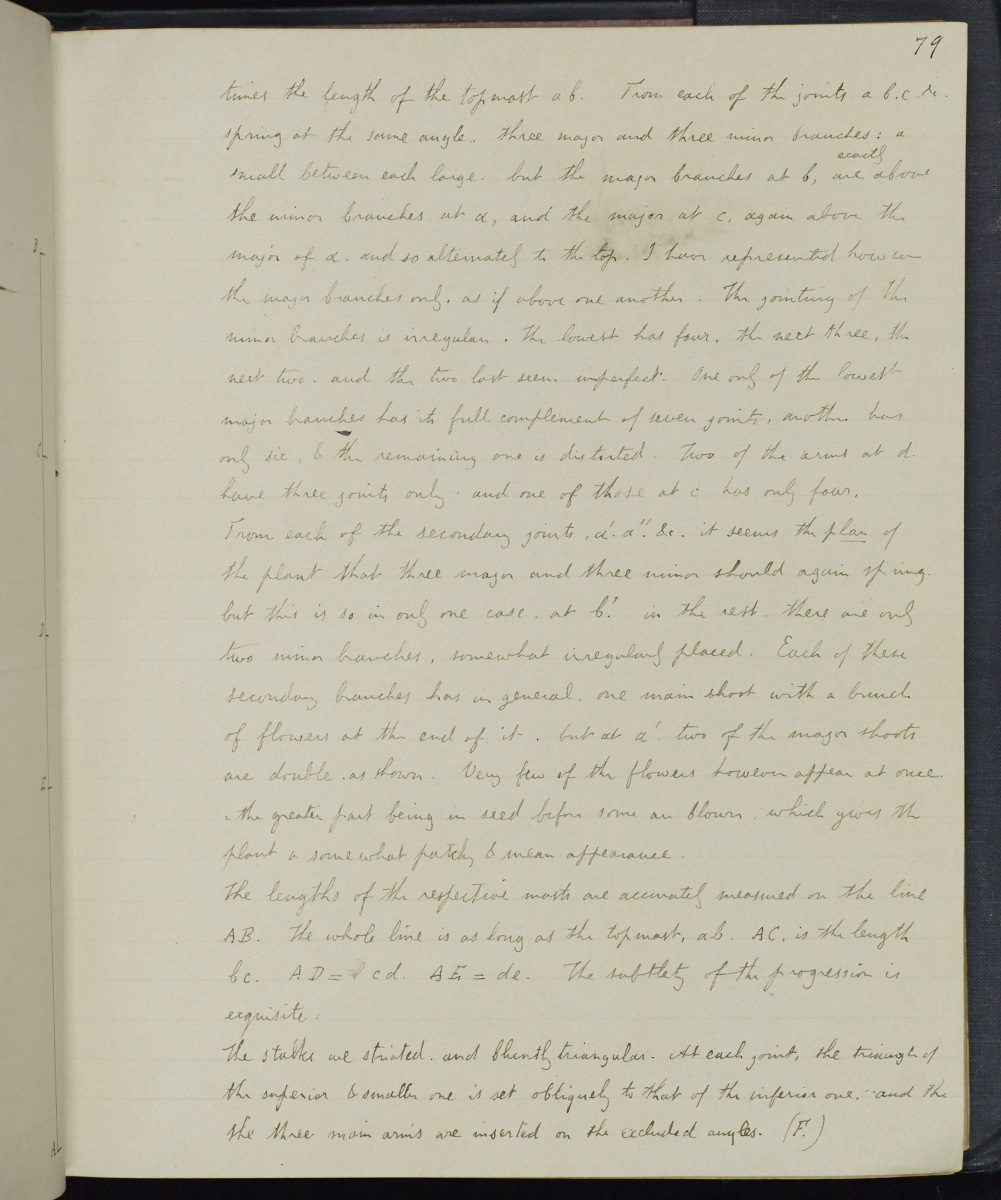 79
times the length of the topmast ab. From each of the joints a b.c. &c.
spring at the same angle, three major and three minor branches: a
exactly
small between each large. but the major branches at b, are above
the minor branches at a, and the major at c, again above the
major of a. and so alternately to the top. I have represented however
the major branches only, as if above one another. The jointing of the
minor branches is irregular. the lowest has four, the next three, the
next two. and the two last seem imperfect. One only of the lowest
major branches has its full complement of seven joints, another has
only six, & the remaining one is distorted. Two of the arms at d.
have three joints only. and one of those at c has only four.
From each of the secondary joints, a'. a''. &c. it seems the plan of
the plant that three major and three minor should again spring.
but this is so in only one case. at b'. in the rest. there are only
two minor branches, somewhat irregularly placed. Each of these
secondary branches has in general, one main shoot with a bunch
of flowers at the end of it. but at a' two of the major shoots
are double. as shown. Very few of the flowers however appear at once.
the greater part being in seed before some are blown. which gives the
plant a somewhat patchy & mean appearance.
The lengths of the respective masts are accurately measured on the line
AB. The whole line is as long as the topmast, ab. AC, is the length
bc. AD = cd. AE = de. The subtlety of the progression is
exquisite.
The stalks are striated. and bluntly triangular. At each joint, the triangle of
the superior & smaller one is set obliquely to that of the inferior one. and the
the three main arms are inserted on the excluded angles. (F.)
B
C
D
E
A